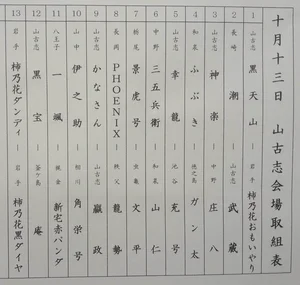 十月十三日 山古志会場取組表
1 山古志 黒天山 ― 岩手 柿乃花おもいやり
2 長崎 潮 ― 山古志 武蔵
3 山古志 神楽 ― 中野 庄八
4 和泉 ふぶき ― 徳之島 ガン太
5 山古志 幸龍 ― 池谷 充号
6 中野 三五兵衛 ― 和泉 山仁
7 栃尾 景虎号 ― 文平
8 長岡 PHOENIX ― 秩父 龍勢
9 山古志 かなさん ― 山古志 嬴政
10 山中 伊之助 ― 相川 角栄号
11 八王子 一颯 ― 桃金 新宅赤パンダ
12 山古志 黒宝 ― 菅ケ島 庵
13 岩手 柿乃花ダンディ ― 岩手 柿乃花黒ダイヤ